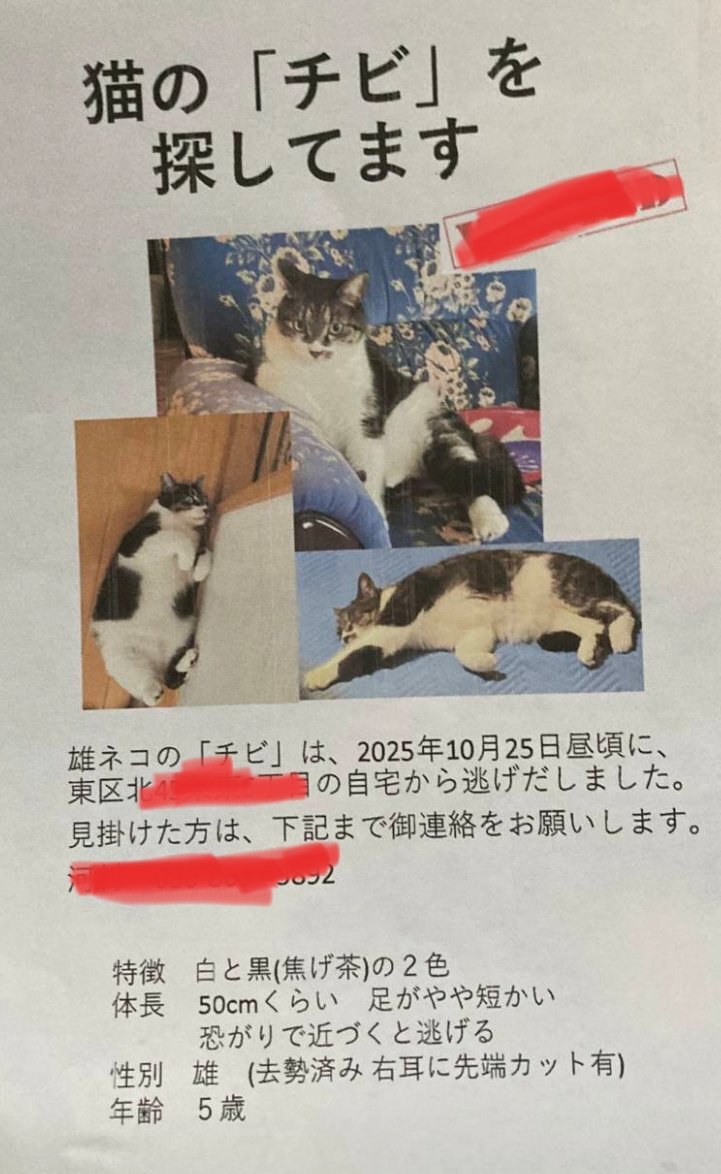 猫の「チビ」を
探してます
雄ネコの「チビ」は、2025年10月25日昼頃に、
東区北 目の自宅から逃げだしました。
見掛けた方は、下記まで御連絡をお願いします。
特徴 白と黒(焦げ茶)の2色
体長 50cmくらい 足がやや短かい
恐がりで近づくと逃げる
性別 雄 (去勢済み 右耳に先端カット有)
年齢 5歳